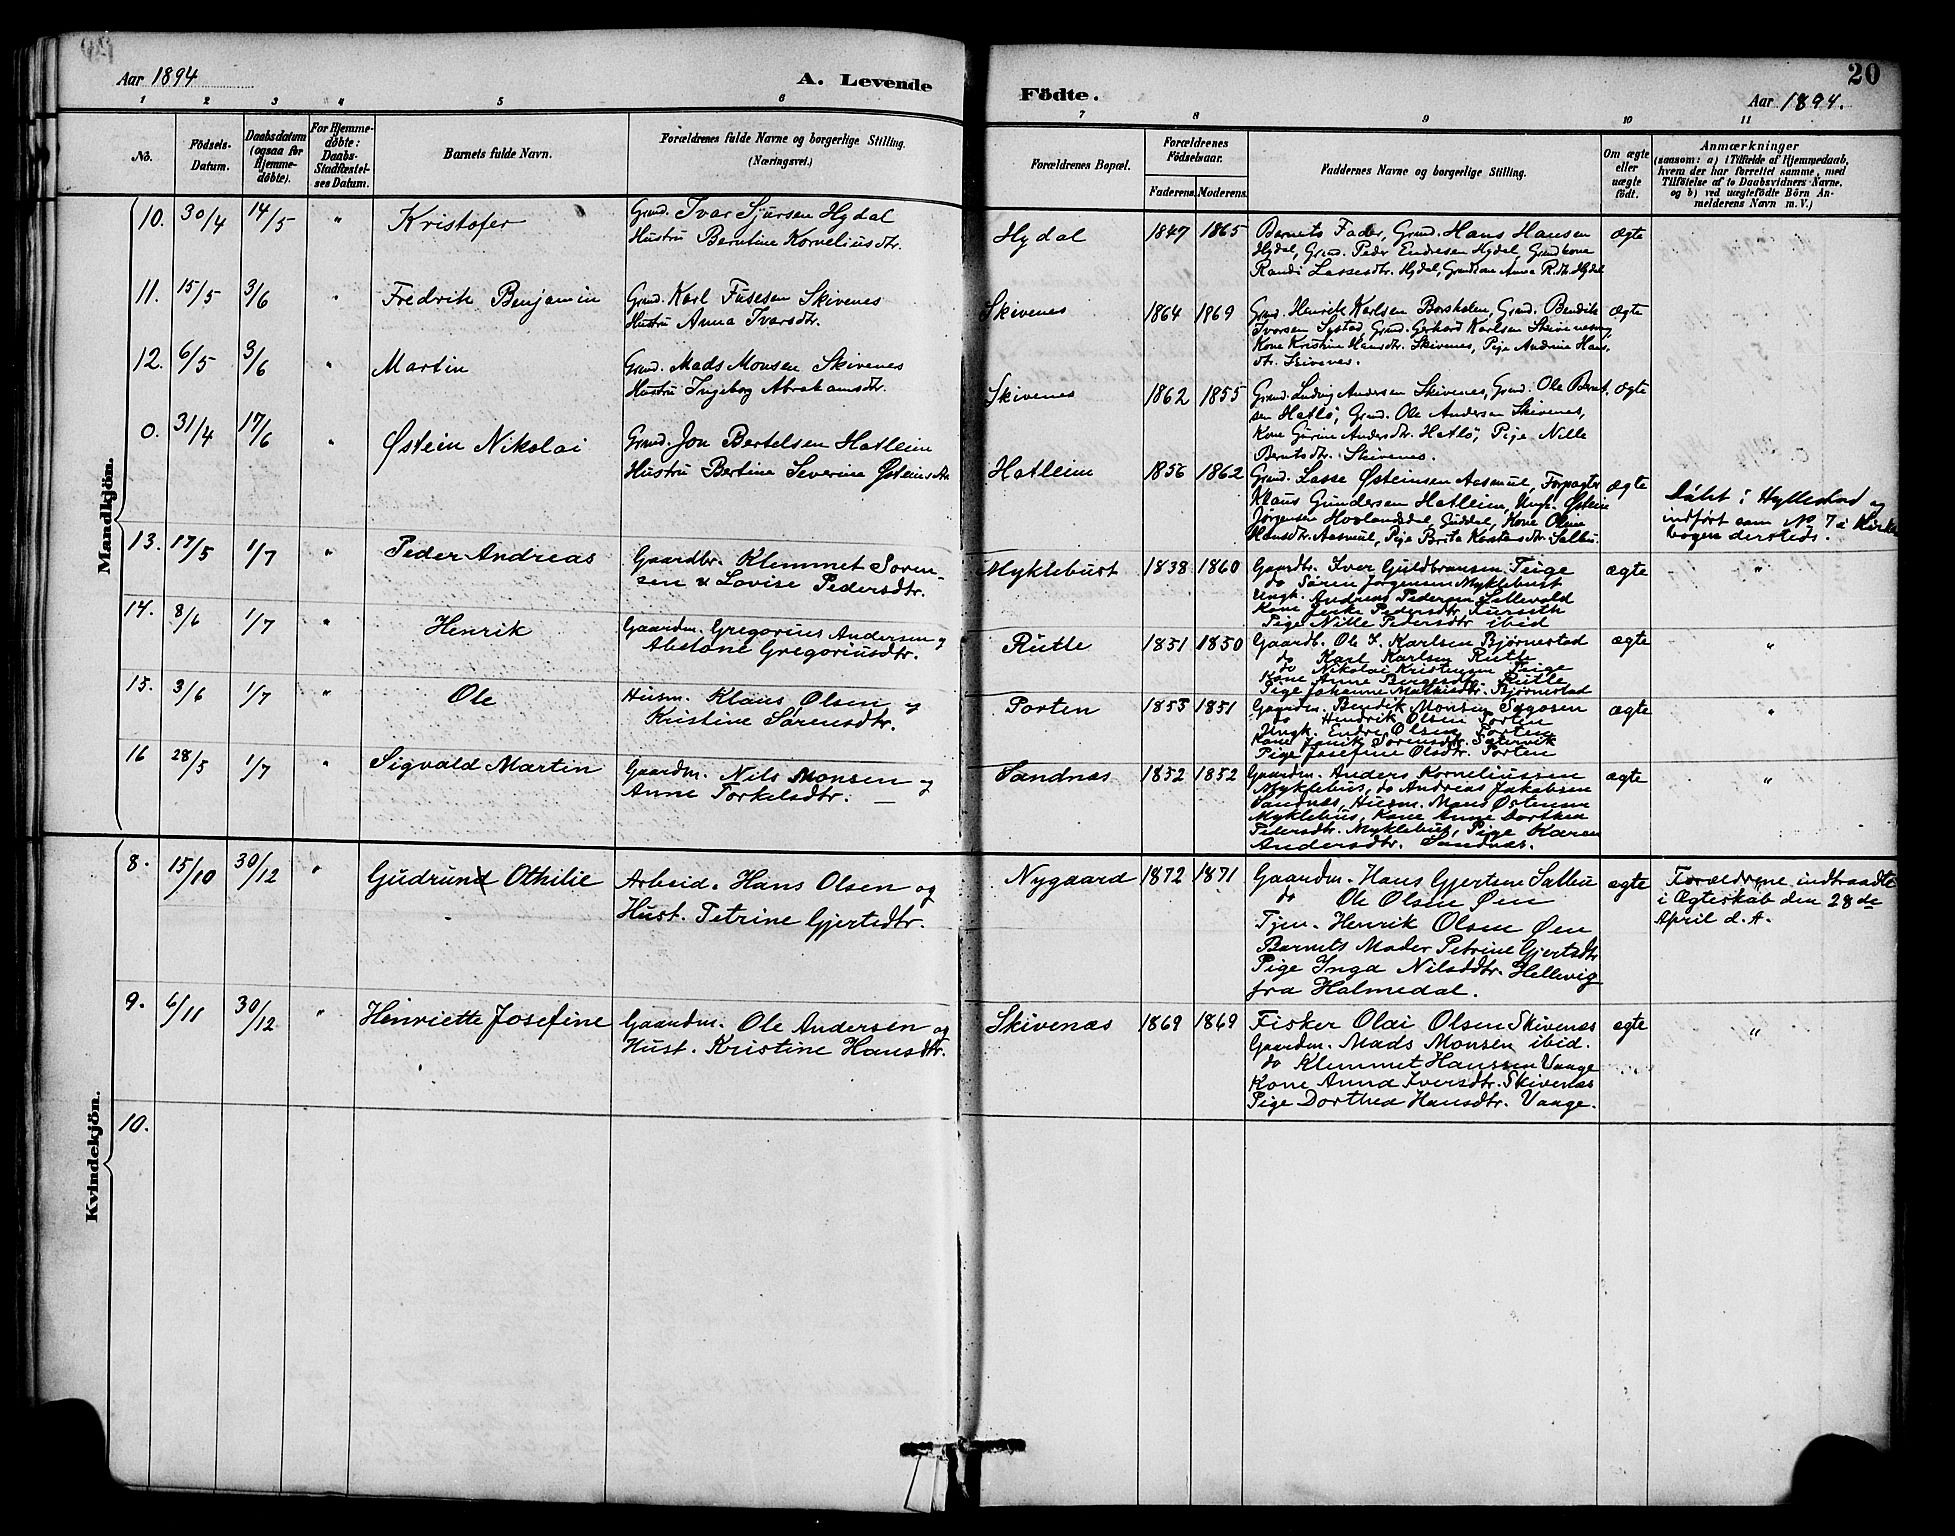 Aar 1894
A. Levende
Födte.
20
Aar 1894.
1 2 3 4 5 6 7 8 9 10 11
No.
Födsels-
Datum.
Daabsdatum
(ogsaa for
Hjemme-
döbte).
For Hjemme-
döbte:
Daabs-
Stadfæstel-
ses Datum.
Barnets fulde Navn.
Forældrenes fulde Navne og borgerlige Stilling.
(Næringsvei.)
Forældrenes Bopæl.
Forældrenes
Födselsaar.
Faderens. Moderens.
Faddernes Navne og borgerlige Stilling.
Om ægte
eller
uægte
födt.
Anmærkninger
(saasom: a) i Tilfælde af Hjemmedaab,
hvem der har forrettet samme, med
Tilföielse af to Daabsvidners Navne,
og b) ved uægtefödte Börn An-
melderens Navn m. V.)
Mandkjön.
10. 30/4 14/5 " Kristofer
Grmd. Ivar Sjursen Hydal
Hustru Berntine Korneliusdtr.
Hydal 1847 1865
Barnets Fader, Grmd. Hans Hansen
Hydal, Grmd. Peder Endresen Hydal, Grmdkone
Randi Lassesdtr. Hydal, Grmdkone Anna R.dtr. Hydal
Ægte
11. 15/5 3/6 " Fredrik Benjamin
Grmd. Karl Fusesen Skivenes
Hustru Anna Ivarsdtr.
Skivenes 1864 1869
Grmd. Henrik Karlsen Borsholm, Grmd. Bendik
Ivarsen Systad, Grmd. Gerhard Karlsen Skivenes,
Kone Kristine Hansdtr. Skivenes, Pige Andrine Hans
dtr. Skivenes.
Ægte
12. 6/5 3/6 " Martin
Grmd. Mads Monsen Skivenes
Hustru Ingebog Abrahamsdtr.
Skivenes 1862 1855
Grmd. Ludvig Andersen Skivenes, Grmd. Ole Bernt-
sen Hatlö, Grmd. Ole Andersen Skivenes,
Kone Gurine Andersdtr. Hatlö, Pige Nille
Berntsdtr. Skivenes.
Ægte
0. 31/4 17/6 " Østein Nikolai
Grmd. Jon Bertelsen Hatleim
Hustru Bertine Severine Østeinsdtr
Hatleim 1856 1862
Grmd. Lasse Østeinsen Aasmul, Forpagter
Klaus Gundersen Hatleim, Ungk. Østein
Jørgensen Hovlandsdal, Guddal, Kone Oline
Hansdtr. Aasmul, Pige Brita Karstensdtr. Salbu.
Ægte
Döbt i Hyllestad og
indført som No 7 i Kirke
bogen dersteds.
13. 17/5 1/7 " Peder Andreas
Gaardbr. Klemmet Soren-
sen & Lovise Pedersdtr.
Myklebust 1838 1860
Gaardbr. Iver Guldbransen Teige
do Søren Jørgensen Myklebust
Ungk. Andreas Pedersen Sallevald
Kone Jenke Pedersdtr
Pige Nille Pedersdtr ibid
ægte "
14. 8/6 1/7 " Henrik
Gaardm. Gregorius Andersen og
Abelone Gregoriusdtr.
Rutle 1851 1850
Gaardb. Ole I. Karlsen Bjørnestad
do Karl Karlsen Rutle
do Nikolai Kristensen Teige
Kone Anne Børgesdtr. Rutle
Pige Johanne Mathisdtr. Bjørnestad
ægte "
15. 3/6 1/7 " Ole
Husm. Klaus Olsen og
Kristine Sørensdtr.
Porten 1853 1851
Gaardm. Bendik Monsen Sygosen
do Hendrik Olsen Porten
Ungk. Endre Olsen Porten
Kone Jenik Sørensdtr. Sætervik
Pige Josefine Olsdtr. Porten
ægte "
16 28/5 1/7 " Sigvald Martin
Gaardm. Nils Monsen og
Anne Torkelsdtr.
Sandnæs 1852 1852
Gaardm. Anders Korneliussen
Myklebus, do Andreas Jakobsen
Sandnæs, Husm. Mons Østensen
Myklebus, Kone Anne Dorthea
Pedersdtr. Myklebus, Pige Karen
Andersdtr. Sandnæs.
ægte "
Kvindekjön.
8. 15/10 30/12 " Gudrund Othilie
Arbeid. Hans Olsen og
Hust. Petrine Gjertsdtr.
Nygaard 1872 1871
Gaardm. Hans Gjertsen Salbu
do Ole Olsen Øen
Tjen. Henrik Olsen Øen
Barnets Moder Petrine Gjertsdtr
Pige Inga Nilsdtr. Hellevig
fra Holmedal.
ægte
Forældrene indtraadte
i Ægteskab den 28de
April d. A.
9. 6/11 30/12 " Henriette Josefine
Gaardm. Ole Andersen og
Hust. Kristine Hansdtr.
Skivenæs 1869 1869
Fisker Olai Olsen Skivenæs
Gaardm. Mads Monsen ibid.
do Klemmet Hanssen Vaage
Kone Anna Iversdtr. Skivenæs
Pige Dorthea Hansdtr. Vaage.
ægte "
10.